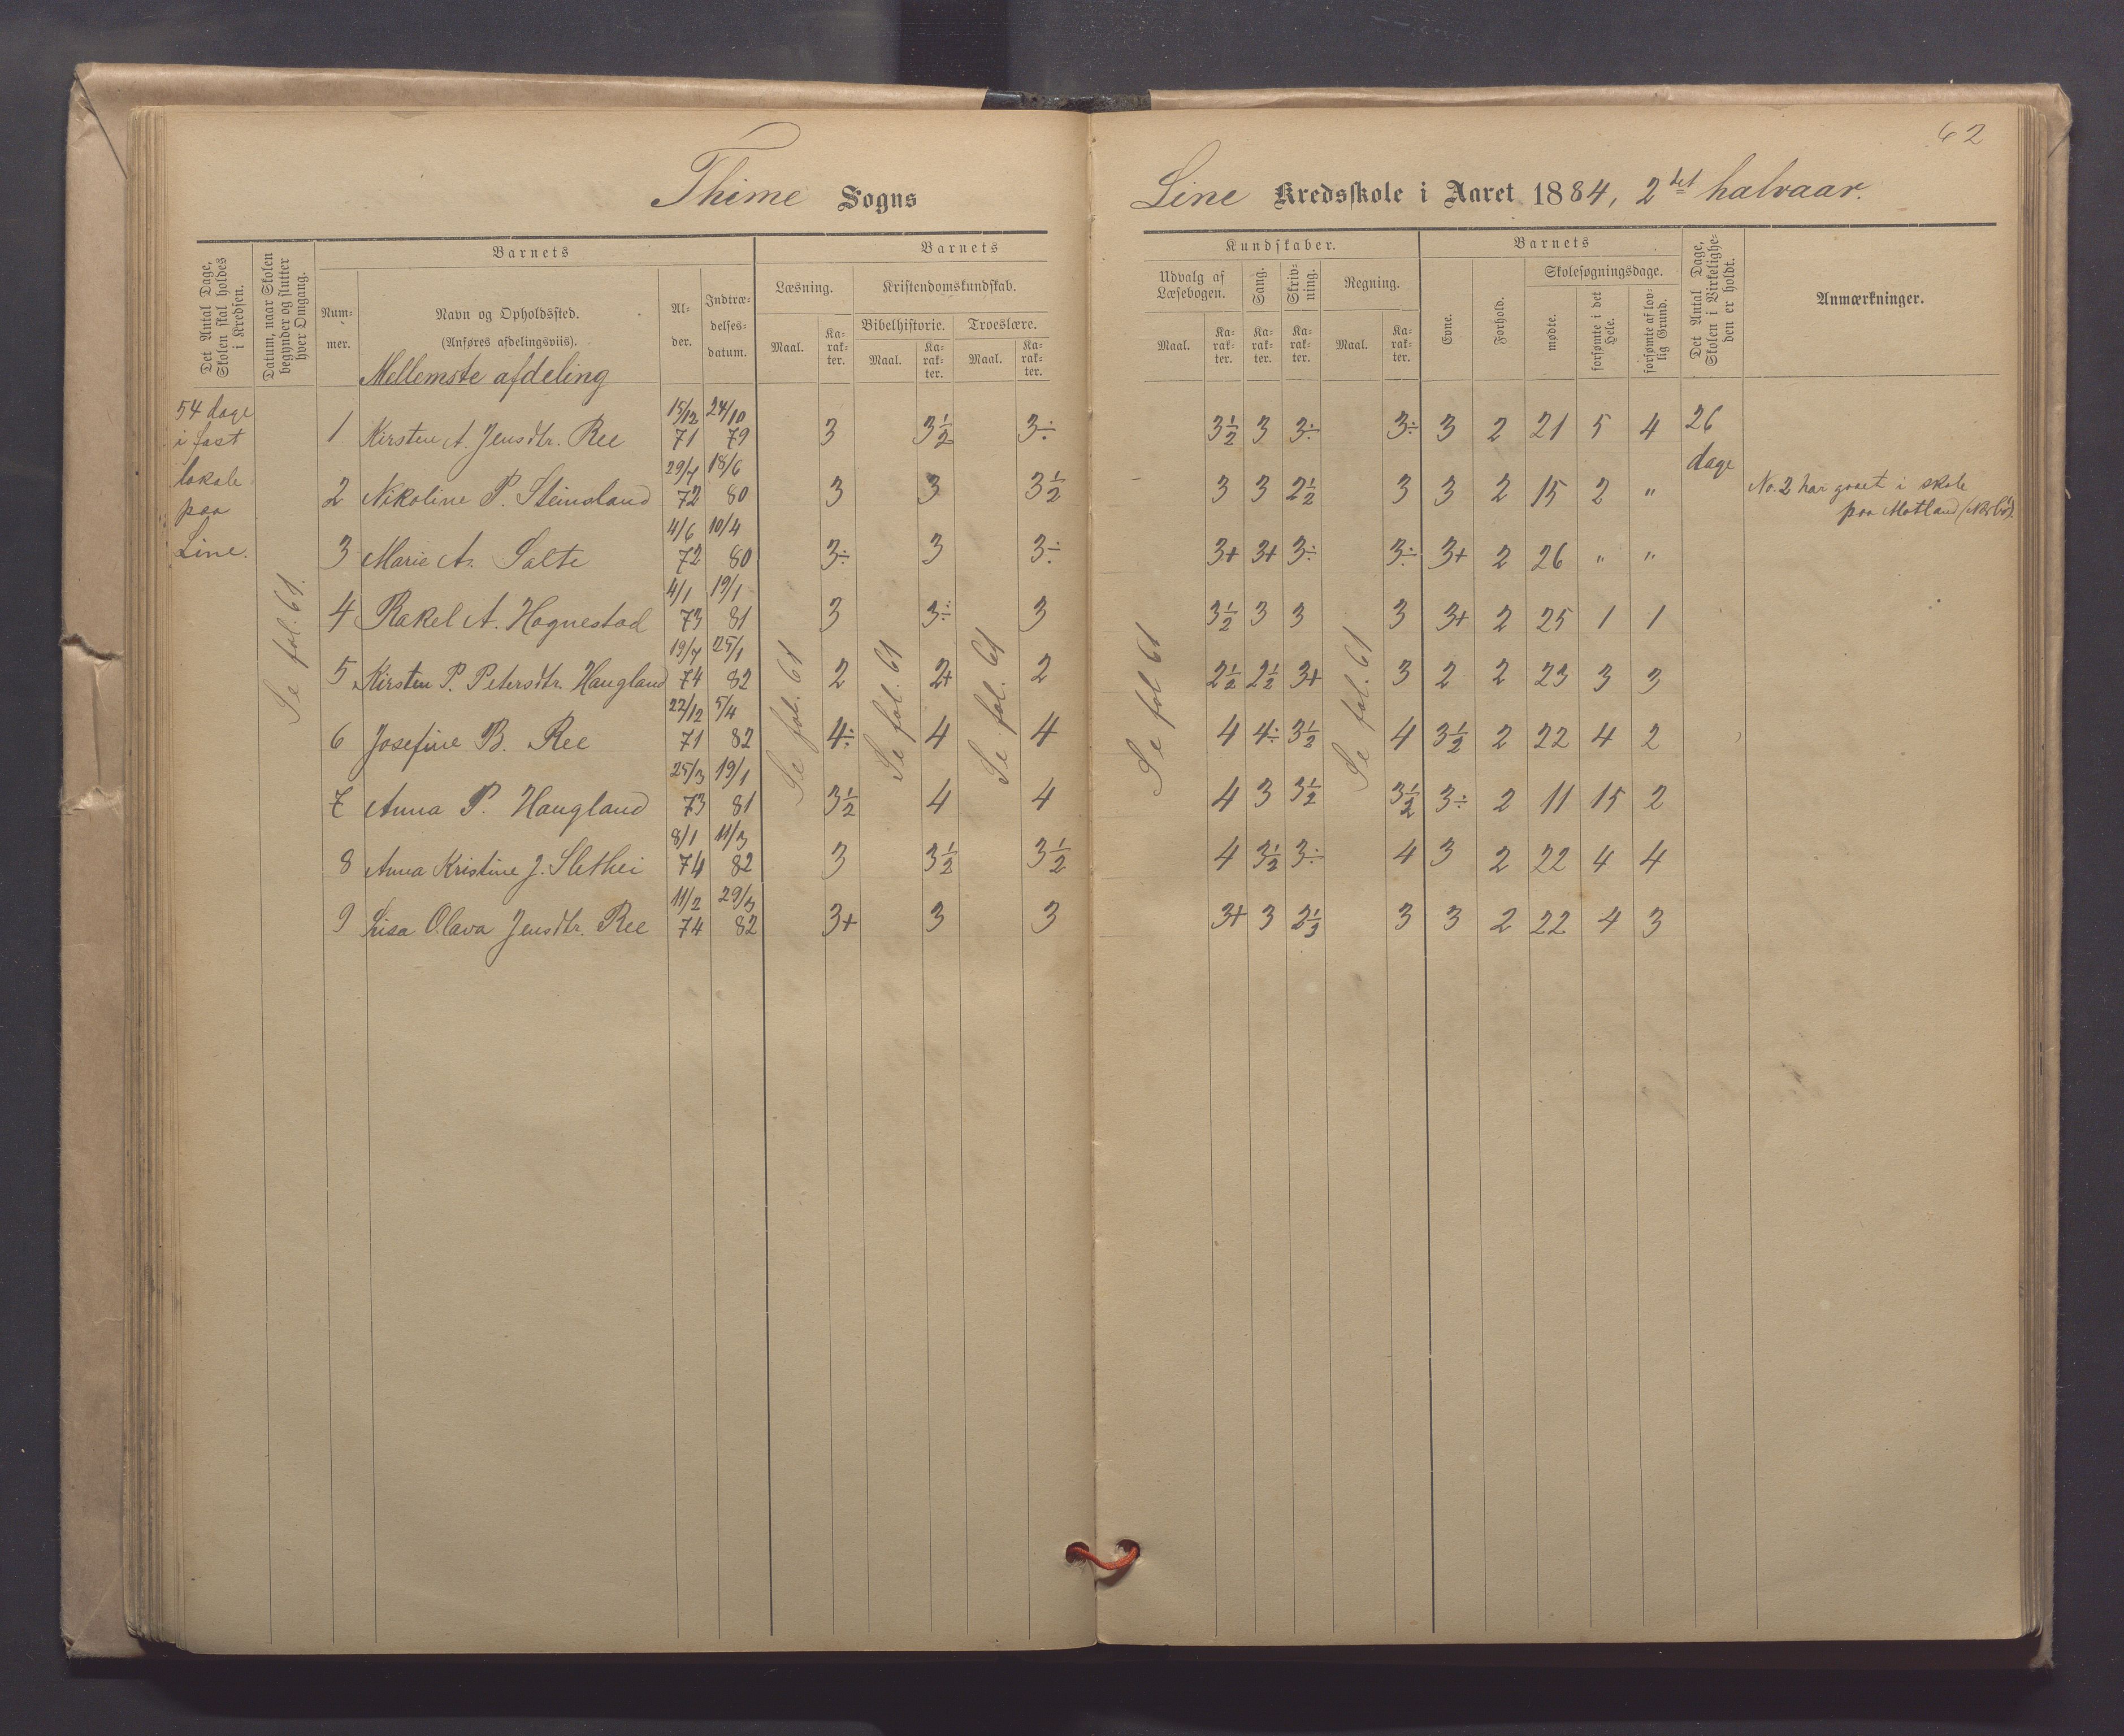 62
Thime Sogns
Line Kredsskole i Aaret 1884, 2det halvaar.
Det Antal Dage, Skolen skal holdes i Kredsen.
Datum, naar Skolen begynder og slutter hver Omgang.
Barnets
Num-mer.
Navn og Opholdssted.
(Anføres afdelingsviis).
Al-der.
Indtræ-delses-datum.
Barnets
Læsning.
Maal.
Ka-rak-ter.
Kristendomskundskab.
Bibelhistorie.
Maal.
Ka-rak-ter.
Troeslære.
Maal.
Ka-rak-ter.
Kundskaber.
Udvalg af Læsebogen.
Maal.
Ka-rak-ter.
Sang.
Ka-rak-ter.
Skriv-ning.
Ka-rak-ter.
Regning.
Maal.
Ka-rak-ter.
Barnets
Evne.
Forhold.
Skolesøgningsdage.
mødte.
forsømte i det Hele.
forsømte af lov-lig Grund.
Det Antal Dage, Skolen i Virkelighe-den er holdt.
Anmærkninger.
Mellemste afdeling
54 dage
i fast
lokale
paa
Line.
Se fol. 61.
1 Kirsten A. Jensdtr. Ree 15/12 71 24/10 79 3 3½ 3÷ 3½ 3 3÷ 3÷ 3 2 21 5 4 26 dage
2 Nikoline P. Steinsland 29/7 72 18/6 80 3 3 3½ 3 3 2½ 3 3 2 15 2 "
No. 2 har gaaet i skole
paa Motland (Nærbø).
3 Marie A. Salte 4/6 72 10/4 80 3÷ 3 3÷ 3+ 3+ 3÷ 3÷ 3+ 2 26 " "
4 Rakel A. Hognestad 4/1 73 19/1 81 3 3÷ 3 3½ 3 3 3 3+ 2 25 1 1
5 Kirsten P. Petersdtr. Haugland 19/7 74 25/1 82 2 2+ 2 2½ 2½ 3+ 3 2 2 23 3 3
6 Josefine B. Ree 22/12 71 5/4 82 4÷ 4 4 4 4÷ 3½ 4 3½ 2 22 4 2
7 Anna P. Haugland 25/3 73 19/1 81 3½ 4 4 4 3 3½ 3½ 3÷ 2 11 15 2
8 Anna Kristine J. Slethei 8/1 74 11/3 82 3 3½ 3½ 4 3½ 3÷ 4 3 2 22 4 4
9 Lisa Olava Jensdtr. Ree 11/2 74 29/3 82 3+ 3 3 3+ 3 2⅓ 3 3 2 22 4 3
Se fol. 61
Se fol. 61
Se fol. 61
Se fol 61
Se fol. 61